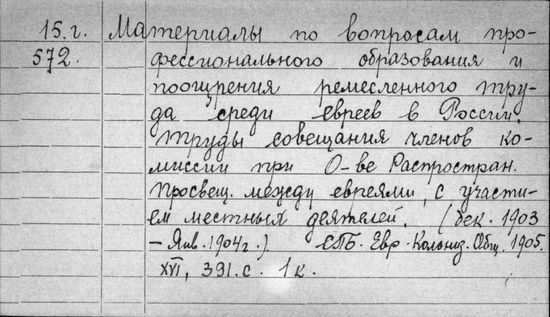 15.г. Материалы по вопросам про-
572. фессионального образования и
поощрения ремесленного тру-
да среди евреев в России.
Труды совещания членов ко-
миссии при О-ве Распростран.
просвещ. между евреями, с участи-
ем местных деятелей. (Дек. 1903
– Янв. 1904г.) СПБ. Евр. Колониз. Общ. 1905.
XVI, 391. с. 1 к.